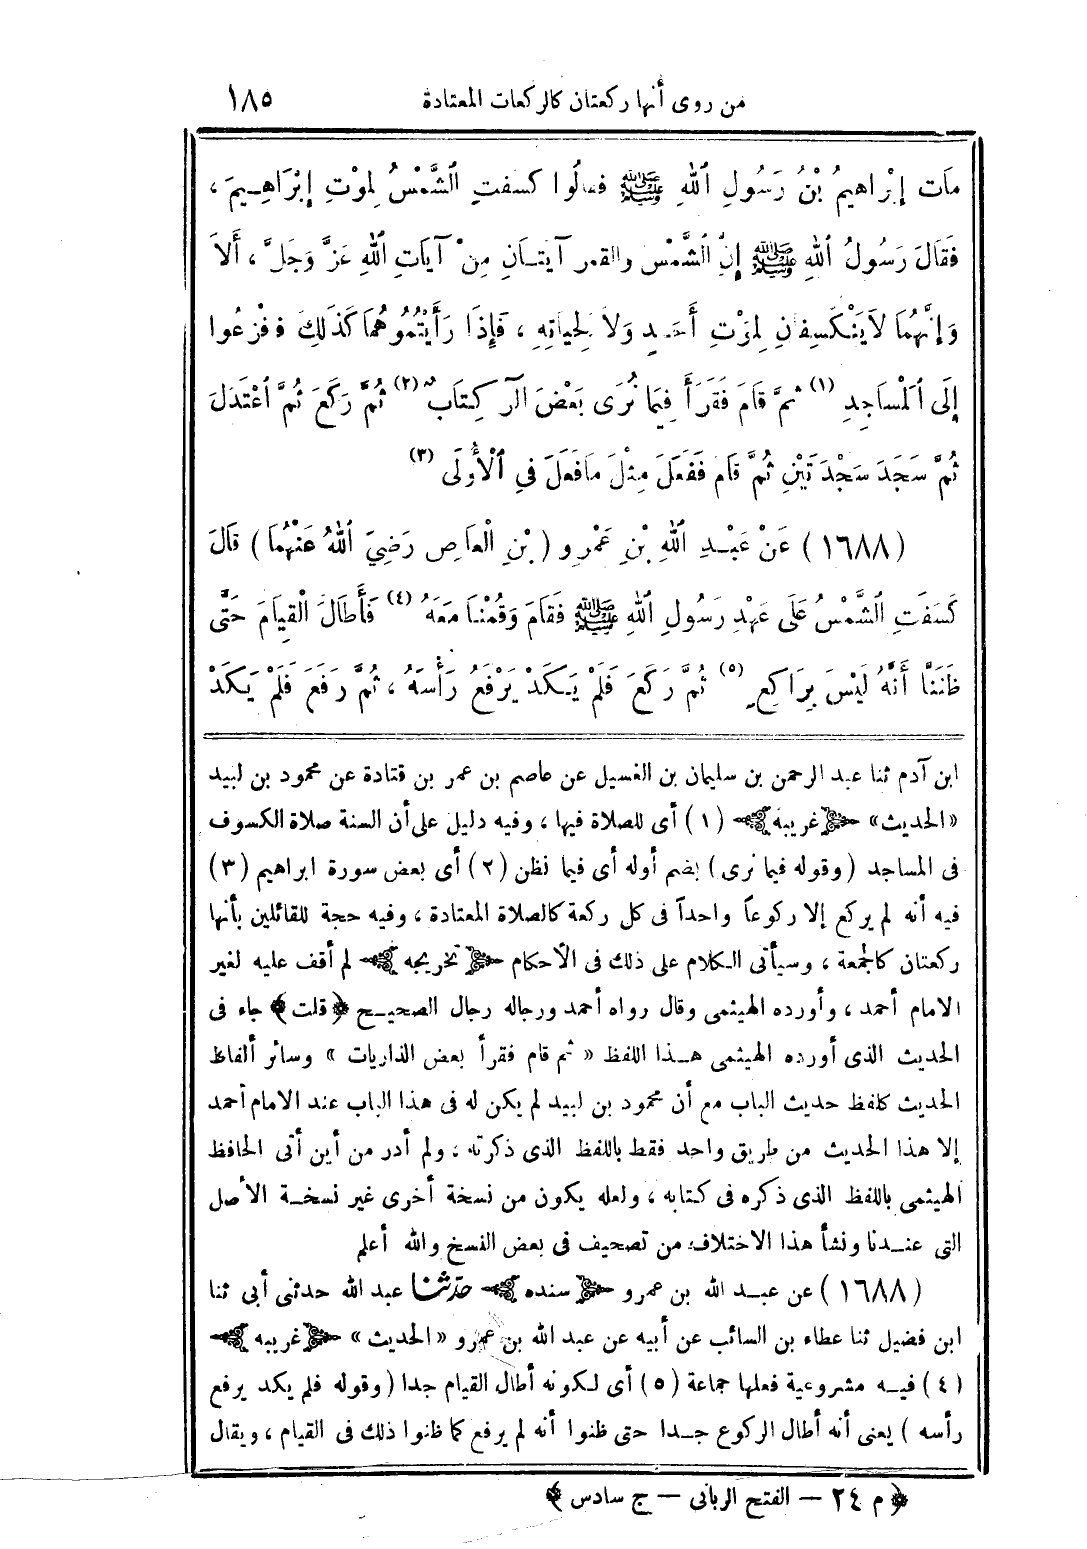 من روى أنها ركعتان كالركعات المعتادة ١٨٥
مَات إِبْرَاهِيمُ بْنُ رَسُولِ اللهِ ﷺ فقالُوا كسفتِ الشَّمْسُ لِموْتِ إِبْرَاهِيمَ ،
فَقَالَ رَسُولُ اللهِ ﷺ إِنَّ الشَّمْسَ والقمر آيتَانِ مِنْ آيَاتِ اللهِ عَزَّ وَجَلَّ ، أَلاَ
وَإِنَّهُمَا لاَيَنْكَسِفَانِ لِمَوْتِ أَحَدٍ وَلاَ لِحيَاتِهِ ، فَإِذَا رَأَيْتُمُوهُمَا كَذَلِكَ فافْزعُوا
إِلَى الْمَسَاجِدِ (١) ثمَّ قَامَ فَقَرَأَ فِيمَا نُرَى بَعْضَ الٓر كِتَابٌ (٢) ثُمَّ رَكَعَ ثُمَّ اعْتَدَلَ
ثُمَّ سَجَدَ سَجْدَتَيْنِ ثُمَّ قَامَ فَفَعَلَ مِثْلَ مَافَعَلَ فِي الْأُولَى (٣)
(١٦٨٨) عَنْ عَبْدِ اللهِ بْنِ عَمْرِو (بْنِ الْعَاصِ رَضِيَ اللهُ عَنْهُمَا) قَالَ
كَسَفَتِ الشَّمْسُ عَلَى عَهْدِ رَسُولِ اللهِ ﷺ فَقَامَ وَقُمْنَا مَعَهُ (٤) فَأَطَالَ الْقِيَامَ حَتَّى
ظَنَنَّا أَنَّهُ لَيْسَ بِرَاكِعٍ (٥) ثُمَّ رَكَعَ فَلَمْ يَكَدْ يَرْفَعُ رَأْسَهُ ، ثُمَّ رَفَعَ فَلَمْ يَكَدْ
ابن آدم ثنا عبد الرحمن بن سليمان بن الغسيل عن عاصم بن عمر بن قتادة عن محمود بن لبيد
«الحديث» ﴿غريبه﴾ (١) أى للصلاة فيها ، وفيه دليل على أن السنة صلاة الكسوف
فى المساجد (وقوله فيما نرى) بضم أوله أى فيما نظن (٢) أى بعض سورة ابراهيم (٣)
فيه أنه لم يركع إلا ركوعاً واحداً فى كل ركعة كالصلاة المعتادة ، وفيه حجة للقائلين بأنها
ركعتان كالجمعة ، وسيأتى الكلام على ذلك فى الأحكام ﴿تخريجه﴾ لم أقف عليه لغير
الامام أحمد ، وأورده الهيثمى وقال رواه أحمد ورجاله رجال الصحيح ﴿قلت﴾ جاء فى
الحديث الذى أورده الهيثمى هذا اللفظ « ثم قام فقرأ بعض الذاريات » وسائر ألفاظ
الحديث كلفظ حديث الباب مع أن محمود بن لبيد لم يكن له فى هذا الباب عند الامام أحمد
إلا هذا الحديث من طريق واحد فقط باللفظ الذى ذكرته ، ولم أدر من أين أتى الحافظ
الهيثمى باللفظ الذى ذكره فى كتابه ، ولعله يكون من نسخة أخرى غير نسخة الأصل
التى عندنا ونشأ هذا الاختلاف من تصحيف فى بعض النسخ والله أعلم
(١٦٨٨) عن عبد الله بن عمرو ﴿سنده﴾ حدّثنا عبد الله حدثنى أبى ثنا
ابن فضيل ثنا عطاء بن السائب عن أبيه عن عبد الله بن عمرو «الحديث» ﴿غريبه﴾
(٤) فيه مشروعية فعلها جماعة (٥) أى لكونه أطال القيام جدا (وقوله فلم يكد يرفع
رأسه) يعنى أنه أطال الركوع جدا حتى ظنوا أنه لم يرفع كما ظنوا ذلك فى القيام ، ويقال
﴿م ٢٤ — الفتح الربانى — ج سادس﴾